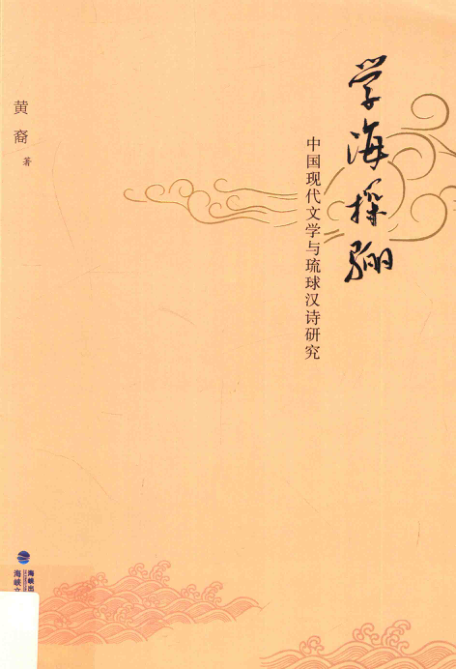 学海探骊
中国现代文学与琉球汉诗研究
黄裔 著
海峡出
海峡文